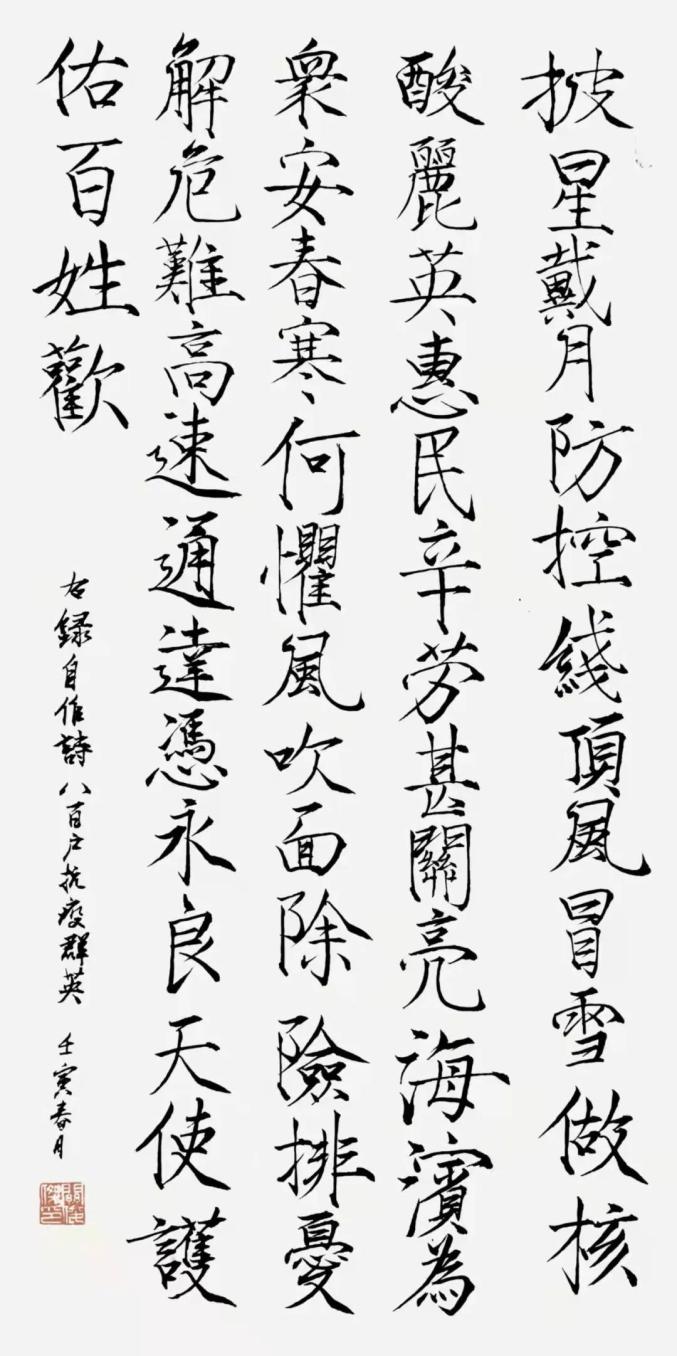 披星戴月防控綫頂風冒雪做核
酸麗英惠民辛劳甚關亮海濱為
衆安春寒何懼風吹面除險排憂
解危難高速通達憑永良天使護
佑百姓歡
右録自作詩八百户抗疫群英 壬寅春月